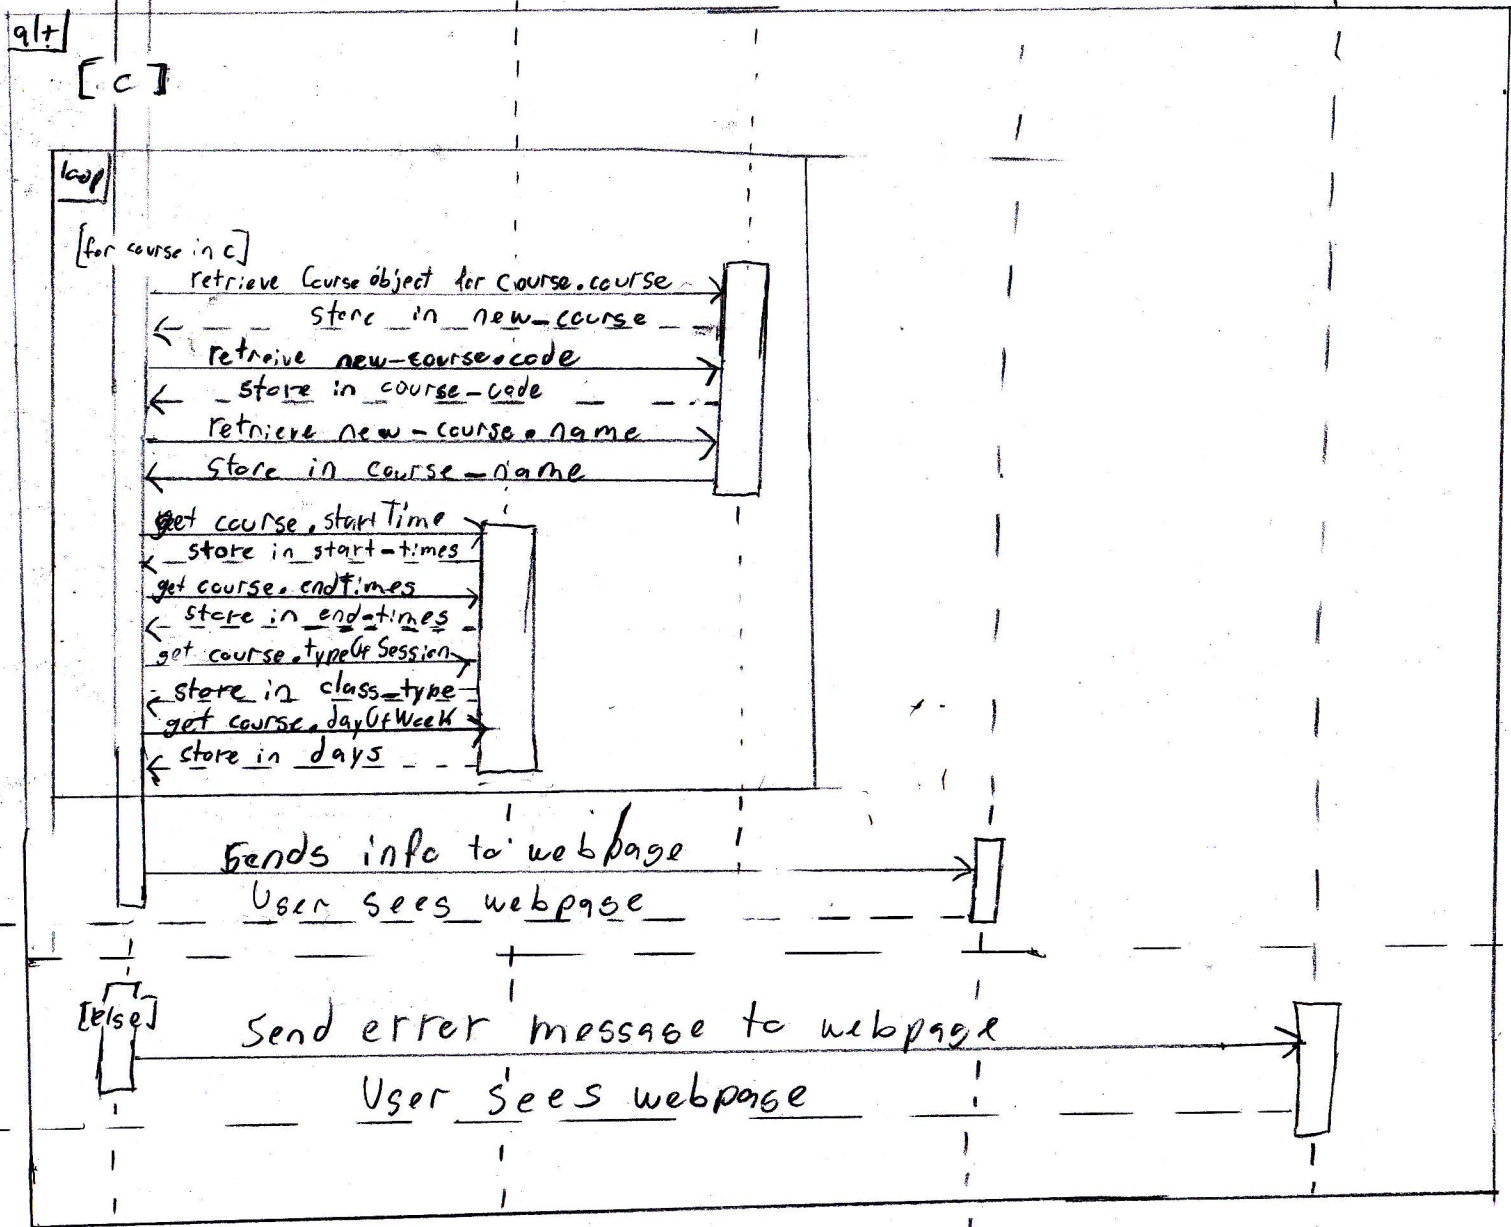 alt
[ c ]
loop
[for course in c]
retrieve Course object for course.course
store in new_course
retreive new-course.code
store in course-code
retrieve new-course.name
store in course-name
get course.startTime
store in start-times
get course.endTimes
store in end-times
get course.typeOfSession
store in class_type
get course.dayOfWeek
store in days
Sends info to webpage
User sees webpage
[else]
Send error message to webpage
User sees webpage